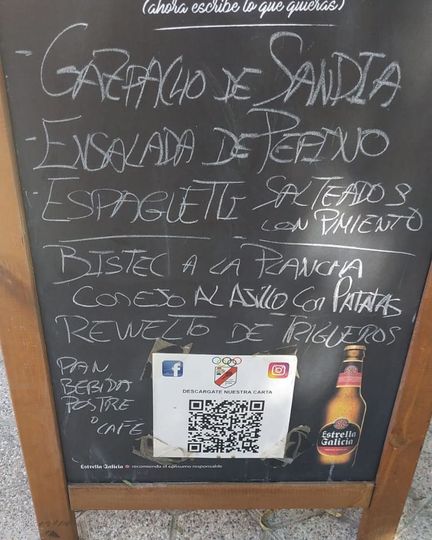 (ahora escribe lo que quieras)
- GAZPACHO DE SANDIA
- ENSALADA DE PEPINO
- ESPAGUETTI SALTEADOS
CON PIMIENTO
BISTEC A LA PLANCHA
CONEJO AL AJILLO CON PATATAS
REVUELTO DE TRIGUEROS
PAN
BEBIDA
POSTRE
O
CAFE
DESCARGATE NUESTRA CARTA
Estrella
Galicia
Estrella Galicia recomienda el consumo responsable